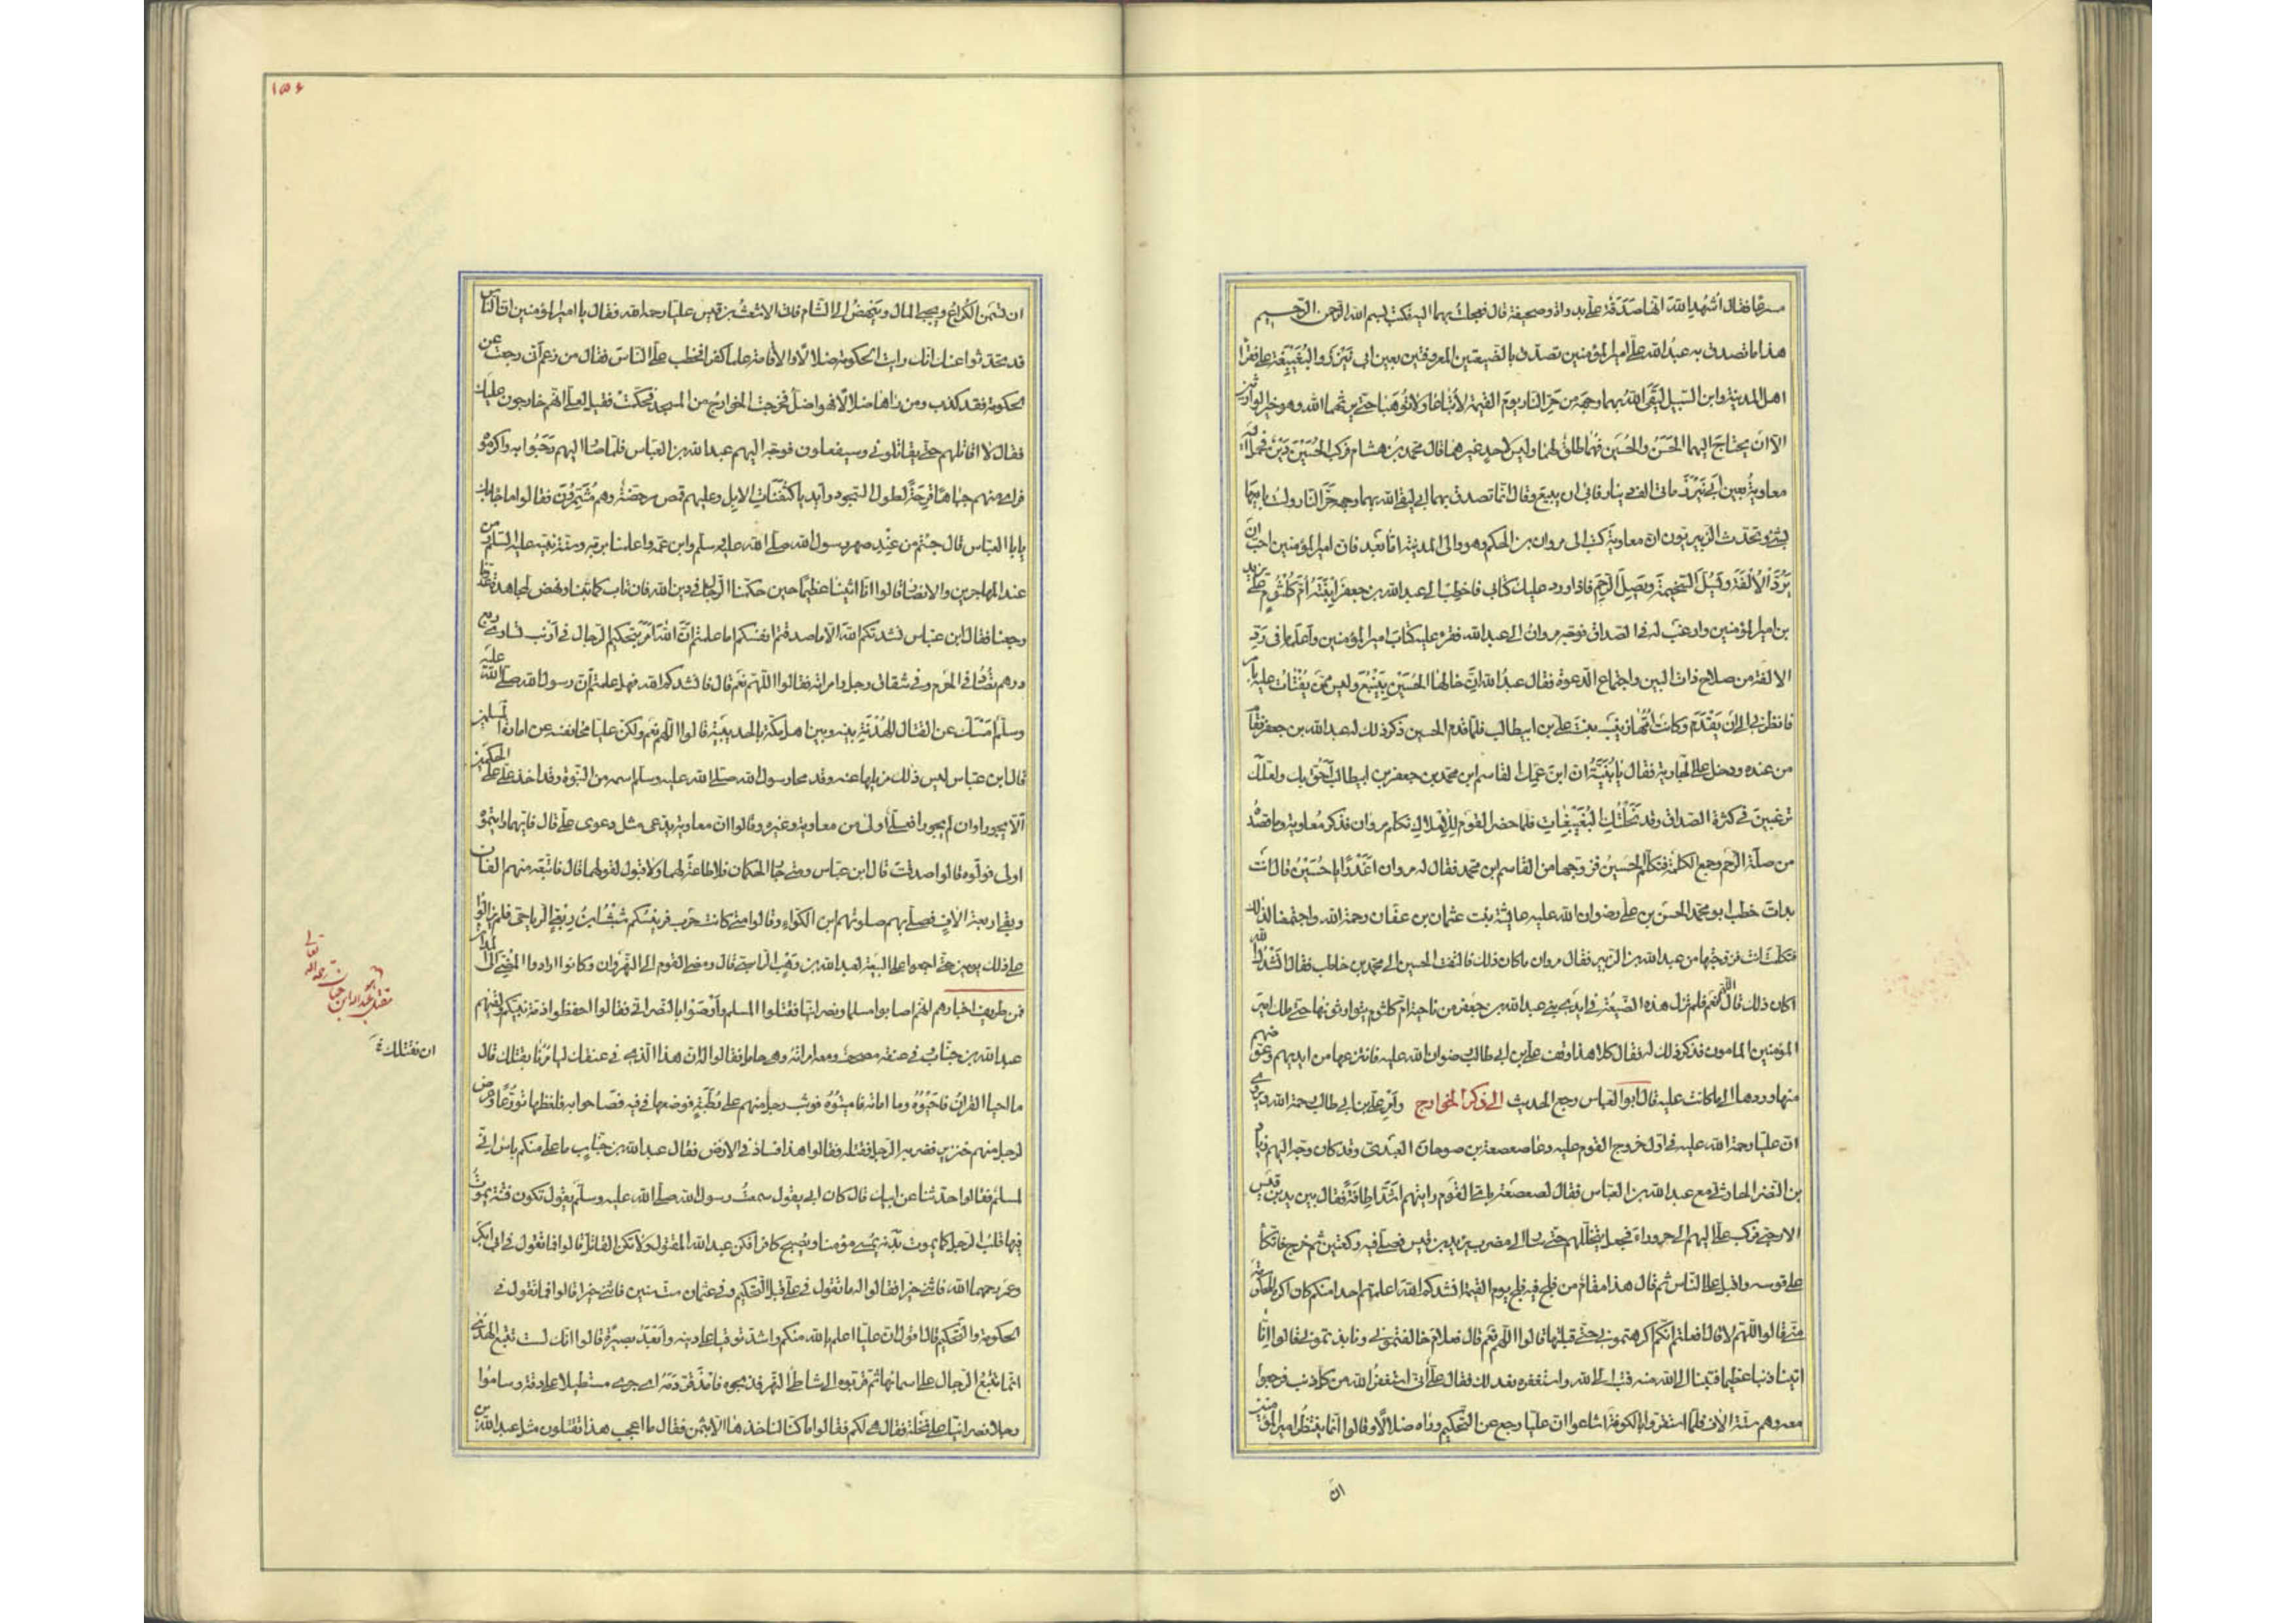 مسرعا فقال اُشهد الله انها صَدَقة علىّ بدواة وصحيفة قال فجئت بهما اليه فكتب بسم الله الرحمن الرحيم
هذا ما تصدق به عبد الله علىّ امير المؤمنين تصدق بالضيعتين المعروفتين بعين ابى نَيْزر والبُغَيبِغة على فقرآ
اهل المدينة وابن السبيل ليَقىَ الله بهما وجهه من حَرّ النار يوم القيمة لا تُباعا ولا تُوهَبا حتى يرثهما الله وهو خير الوارثين
الا ان يحتاج اليهما الحَسَنُ والحُسَين فهُما طلق لهما وليس لاحدٍ غيرهما قال محمد بن هشام فركب الحُسَيْنَ دَيْنٌ فحمل اليه
معاوية بعين ابى نَيْزَر مائتى الف دينار فابى ان يبيع وقال انما تصدق بهما ابى ليقى الله بهما وجهه حَرَّ النار ولست بايعهما
بشئ وتحدث الزبيريون ان معاوية كتب الى مروان بن الحكم وهو والى المدينة اما بعد فان امير المؤمنين احب ان
يَرُدَّ الاُلْفَة ويَسُلَّ السَّخيمة ويصل الرحِمَ فاذا ورد عليك كتابى فاخطب الى عبد الله بن جعفر ابنَتَهُ اُمّ كُلثُومٍ على يزيد
بن امير المؤمنين وارغب له فى الصداق فوجه مروان الى عبد الله فقرء عليه كتاب امير المؤمنين واعلمه ما فى رَدّ
الالفة من صلاح ذات البين واجتماع الدعوة فقال عبدُ الله انّ خالها الحُسَيْن بِيَنْبُعَ وليس ممّن يُفْتَاتُ عليه بامر
فانظرنى الى ان يَقْدَم وكانت اُمُّها زينب بنت على بن ابيطالب فلما قدم الحسين ذكر ذلك له عبد الله بن جعفر فقام
من عنده ودخل على الجارية فقال يا بُنَيَّةُ ان ابنَ عَمِّك القاسم ابن محمد بن جعفر بن ابيطالب اَحَقُّ بك ولعلك
ترغبين فى كثرة الصداق وقد نَحَلْتُكِ البُغَيْبغات فلما حضر القوم للاملاك تكلم مروان فذكر مُعاوية وما قصده
من صلة الرحم وجمع الكلمة فتكلم الحسين فزوجها من القاسم بن محمد فقال له مروان اَغَدْرًا يا حُسَيْنُ قال انت
بدات خطب ابو محمد الحسن بن على رضوان الله عليه عايشة بنت عثمان بن عفان رحمة الله واجتمعنا لذلك
فتكلمت انت فزوجتها من عبد الله بن الزبير فقال مروان ما كان ذلك فالتفت الحسين الى محمد بن حاطب فقال انشدك الله
اكان ذلك قال اللهم نعم فلم تزل هذه الضيعة فى ايدى بنى عبد الله بن جعفر من ناحية ام كلثوم يتوارثونها حتى ملك امير
المؤمنين المامون فذكر ذلك له فقال كلا هذا وقف على بن ابى طالب رضوان الله عليه فانتزعها من ايديهم وعوضهم
منها وردها الى ما كانت عليه قال ابو العباس رجع الحديث الى ذكر الخوارج وامر على بن ابى طالب رحمة الله ويروى
ان عليا رحمة الله عليه فى اول خروج القوم عليه دعا صعصعة بن صوحان العبدى وقد كان وجه اليهم زياد
بن النضر الحارثى مع عبد الله بن العباس فقال لصعصعة باى القوم رايتهم اشدّ اطافةً فقال بيزيد بن قيس
الارحبى فركب علىّ اليهم الى حروراء فجعل يتخللهم حتى صار الى مضرب يزيد بن قيس فصلى فيه ركعتين ثم خرج فاتكأ
على قوسه واقبل على الناس ثم قال هذا مقام من فلج فيه فلج يوم القيمة انشدكم الله اعلمتم احدا منكم كان اكره للحكومة
منّى قالوا اللهم لا قال افعلتم انكم اكرهتمونى حتى قبلتها قالوا اللهم نعم قال فعلامَ خالفتمونى ونابذتمونى قالوا انّا
اتينا ذنبا عظيما فتبنا الى الله منه فتب الى الله واستغفره نعد لك فقال علىّ انى استغفر الله من كل ذنب فرجعوا
معه وهم ستة الاف فلما استقروا بالكوفة اشاعوا ان عليا رجع عن التحكيم ورآه ضلالًا وقالوا انما ينتظر امير المؤمنين
ان
١٥٤
ان يسمن الكُراع ويجبى المال وينهضُ الى الشام فاتى الاشعثُ بن قيس عليا رحمه الله فقال يا امير المؤمنين ان الناس
قد تحدثوا عنك انك رايت الحكومة ضلالًا والاقامة عليها كفرا فخطب علىّ الناسَ فقال من زعم انى رجعت عن
الحكومة فقد كذب ومن راها ضلالًا فهو اضلّ فخرجت الخوارج من المسجد فحكّمت فقيل لعلىّ انهم خارجون عليك
فقال لا اقاتلهم حتى يقاتلونى وسيفعلون فوجه اليهم عبد الله بن العباس فلما صار اليهم رَحّبوا به واكرموه
فراى منهم جباها قَرِحَةً لطول السجود وايديا كثَفنات الابل وعليهم قُمص مرحضة وهم مُشَمِّرُون فقالوا ما جاء بك
يا با العباس قال جئتم من عِنْدِ صهر رسول الله صلى الله عليه وسلم وابن عمه واعلمنا بربه وسنة نبيه عليه السلم ومن
عند المهاجرين والانصار قالوا انا اتينا عظيما حين حكمنا الرجال فى دين الله فان تاب كما تبنا ونهض لمجاهدة عدونا
رجعنا فقال ابن عباس نشدتكم الله الا ما صدقتم انفسكم اما علمتم انَّ اللهَ اَمَرَ بتحكيم الرجال فى اَرْنَب تساوى ربع
درهم تصاد فى الحرم وفى شقاق رجل وامراته فقالوا اللهم نعم قال فانشدكم الله فهل علمتم ان رسول الله صلى الله عليه
وسلم اَمْسَك عن القتال للهُدْنَةِ بينه وبين اهل مكّة بالحديبية قالوا اللهم نعم ولكن عليا محا نفسه عن امارة المسلمين
قال ابن عباس ليس ذلك مزيلها عنه وقد محا رسول الله صلى الله عليه وسلم اسمه من النبوة وقد اخذ علىّ على الحكمين
الّا يجورا وان لم يجورا فعلىّ اولى من معاوية وغيره وقالوا ان معاوية يدعى مثل دعوى علىّ قال فايهما رايتموه
اولى فولّوه قالوا صدقت قال ابن عباس ومتى جار الحكمان فلا طاعة لهما ولا قبول لقولهما قال فاتبعه منهم الفان
وبقى اربعة الافٍ فصلى بهم صلوتهم ابن الكواء وقالوا متى كانت حَرب فريئسكم شَبَثُ ابنُ رِبْعِىٍّ الرياحى فلم يزالوا
على ذلك يومين حتى اجمعوا على البيعة لعبد الله بن وَهْب الراسبى قال ومضى القوم الى النهروان وكانوا ارادوا المضىّ الى المداين
فمن طريف اخبارهم انهم اصابوا مسلما ونصرانيا فقتلوا المسلم واَوْصَوْا بالنصرانى فقالوا احفظوا ذمة نبيكم ولقيهم
عبد الله بن خبّاب فى عنقه مصحف ومعه امراته وهى حامل فقالوا له ان هذا الذى فى عنقك ليامُرُنا بقتلك قال
ما احيا القران فاَحْيُوهُ وما اماته فاميتُوهُ فوثب رجل منهم على رُطَبَةٍ فوضعها فى فيه فصاحوا به فلفظها تورُّعًا وعرض
لرجل منهم خنزير فضربه الرجل فقتله فقالوا هذا فساد فى الارض فقال عبد الله بن خبّابٍ ما علىّ منكم باس انى
لمسلم فقالوا حدثنا عن ابيك قال كان ابى يقول سمعت رسول الله صلى الله عليه وسلم يقول تكون فتنة يموت
فيها قلبُ الرجل كما يموت بَدَنه يُمسى مؤمنا ويصبح كافرا فكن عبد الله المقتول ولا تكن القاتل قالوا فما تقول فى ابى بكر
وعمر رحمهما الله فاثنى خيرا فقالوا له ما تقول فى علىّ قبل التحكيم وفى عثمان ست سنين فاثنى خيرا قالوا فما تقول فى
الحكومة والتحكيم قال اقول ان عليا اعلم بالله منكم واشد توقيا على دينه وابعدُ بصيرةً قالوا انك لست تتبع الهدى
انما تتبعُ الرجال على اسمائها ثم قربوه الى شاطئ النهر فذبحوه فامذقرّ دَمُه اى جرى مستطيلا على دقة وساموا
رجلا نصرانيا على نخلة فقال هى لكم فقالوا ما كنا لناخذها الا بثمن فقال ما اعجب هذا تقتلون مثل عبد الله بن
مقتل عبد الله ابن خباب رحمه الله تعالى
ان نقتلك